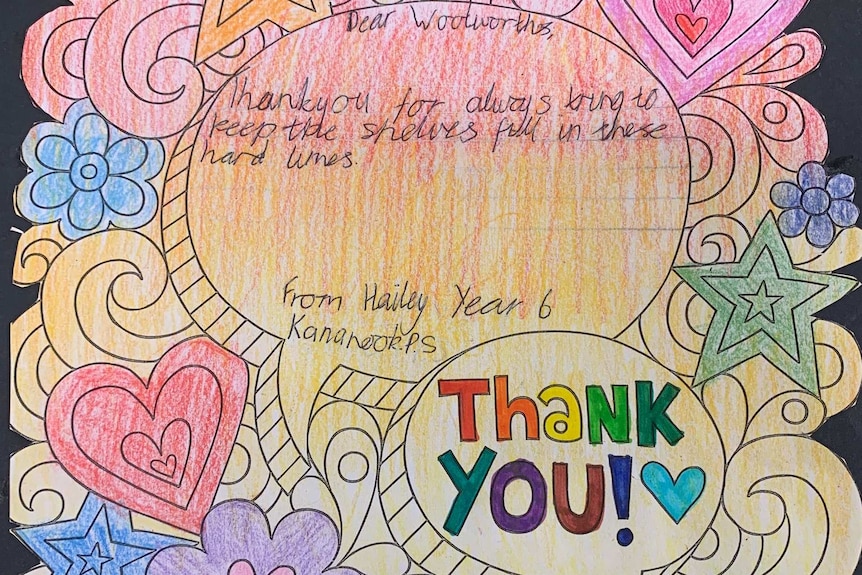 Dear Woolworths,
Thankyou for always trying to
keep the shelves full in these
hard times.
From Hailey Year 6
Kananook.P.S
Thank
you!